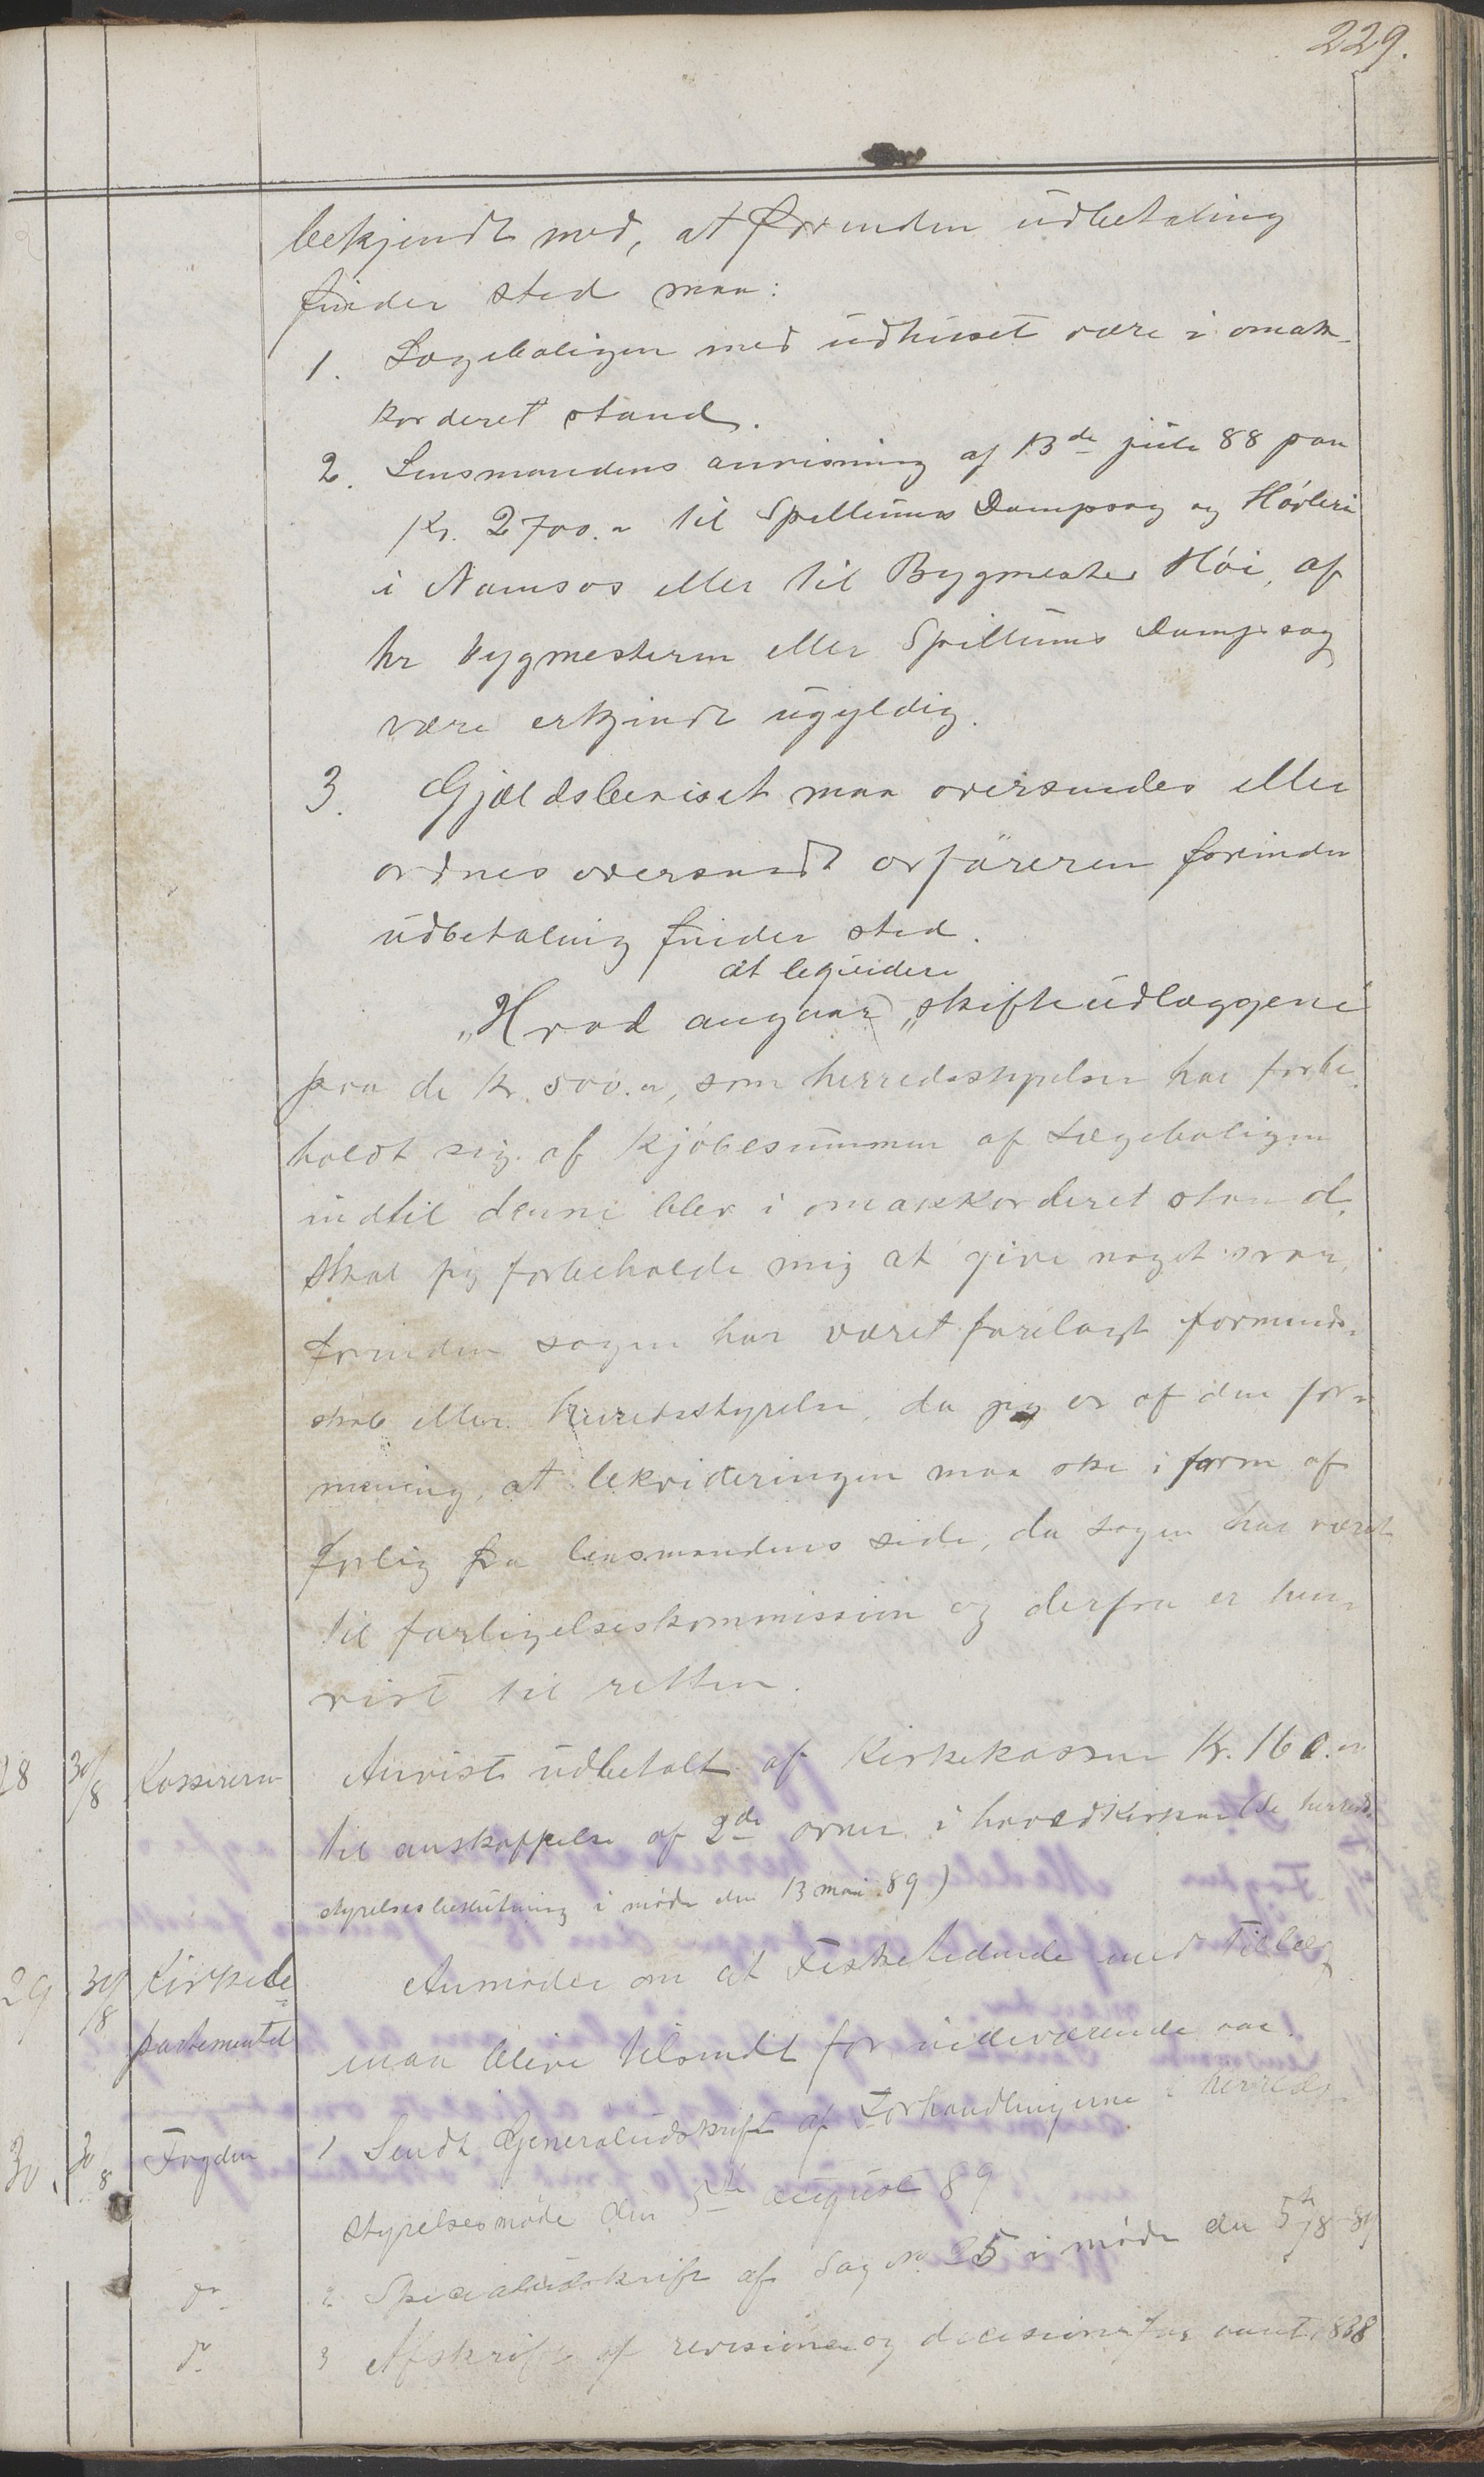 229.
bekjendt med, at forinden udbetaling
finder sted maa:
1. Lægeboligen med udhuset være i omak-
korderet stand.
2. Lensmandens anvisning af 13de juli 88 paa
Kr. 2700.- til Spillums Dampsag og Høvleri
i Namsos eller til Bygmester Høi, af
hr bygmesteren eller Spillums Dampsag
være erkjendt ugyldig.
3. Gjældsbeviset maa oversendes eller
ordnes oversendt ordføreren forinden
udbetaling finder sted.
at liqvidere
„Hvad angaar „skifteudlæggene"
paa de kr. 500.-, som herredsstyrelsen har forbe-
holdt sig af kjøbesummen af Lægeboligen
indtil denne blev i omakkorderet stand,
skal jeg forbeholde mig at give noget svar,
forinden sagen har været forelagt formand-
skab eller herredsstyrelse, da jeg er af den for-
mening, at likvideringen maa ske i form af
forlig fra lensmandens side, da sagen har været
til forligelseskommission og derfra er hen-
vist til retten.
28 30/8 Kassereren Anvist udbetalt af Kirkekassen Kr. 160.-
til anskaffelse af 2de ovner i hovedkirken (se herreds-
styrelsesbeslutning i møde den 13 mai 89)
29 30/8 Kirkede- Anmoder om at Fisketidende med Tillæg
partementet maa blive tilsendt for indeværende aar.
30. 30/8 Fogden 1 Sendt Generaludskrift af Forhandlingerne i herreds-
styrelsesmøde den 5te august 89
do 2 Specialudskrift af Sag no 25 i møde den 5te/8-89
do 3 Afskrift af revisions og decisioner for aaret 1888